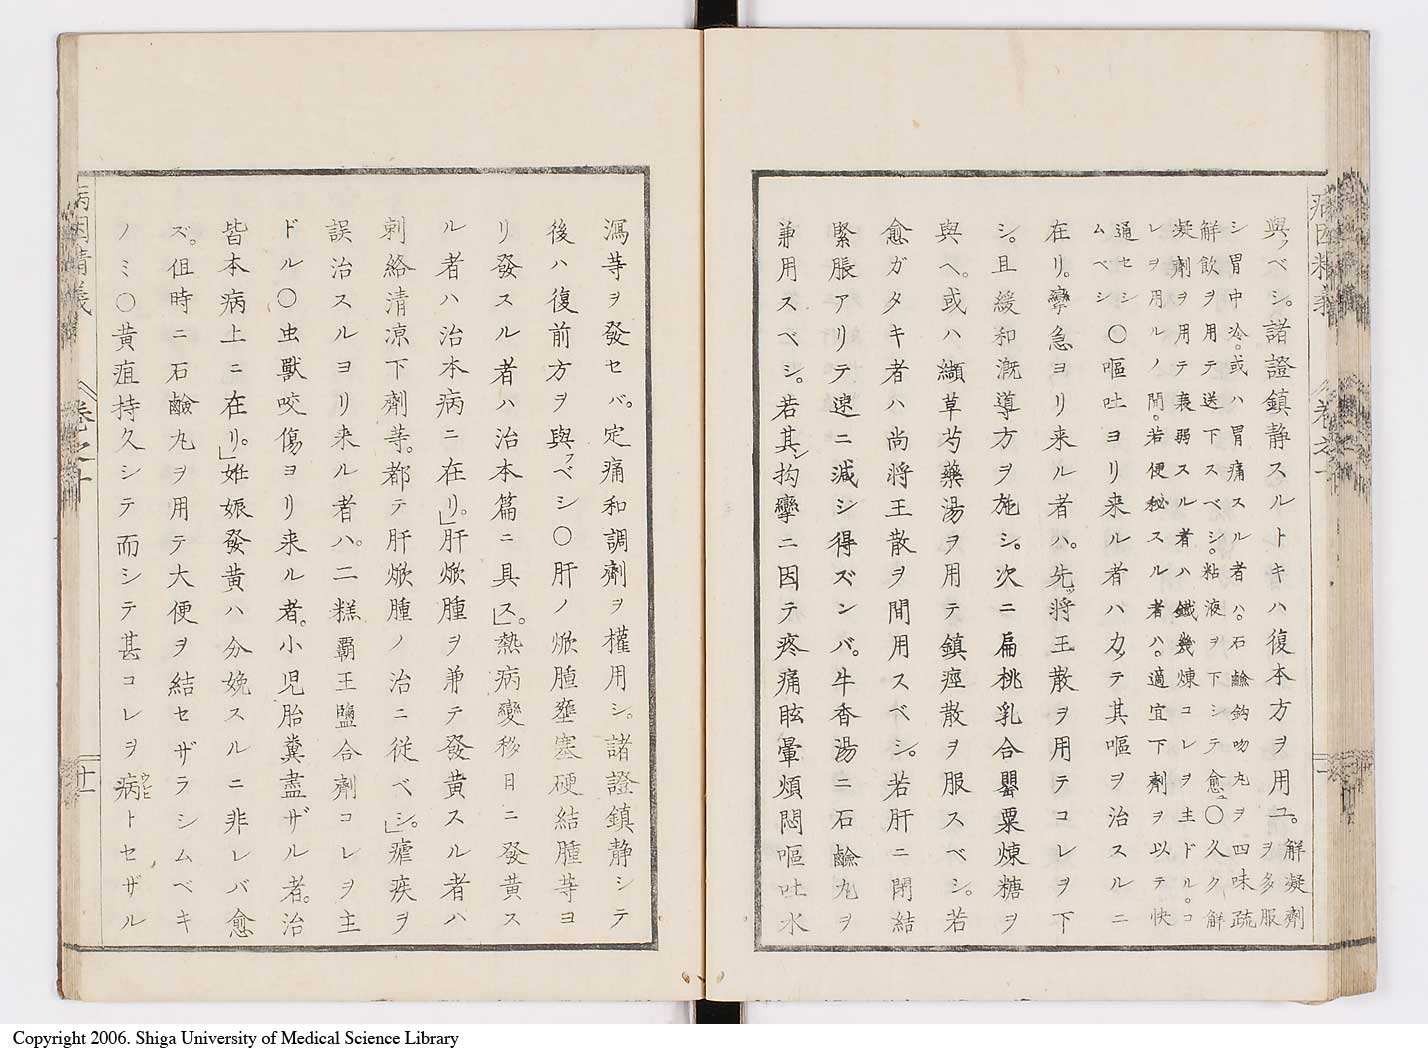 病因精義 卷之十
與フベシ。諸證鎮静スルトキハ復本方ヲ用ユ。解凝劑ヲ多服
シ胃中冷。或ハ胃痛スル者ハ。石鹼鈎吻丸ヲ四味疏
解飲ヲ用テ送下スベシ。粘液ヲ下シテ愈ユ〇久ク解
凝劑ヲ用テ衰弱スル者ハ鐵幾煉コレヲ主ドル。コ
レヲ用ルノ間。若便秘スル者ハ。適宜下劑ヲ以テ快
通セシムベシ
〇嘔吐ヨリ来ル者ハカツテ其嘔ヲ治スルニ
在リ。攣急ヨリ来ル者ハ。先ツ將王散ヲ用テコレヲ下
シ。且緩和漑導方ヲ施シ。次ニ扁桃乳合罌粟煉糖ヲ
與ヘ。或ハ纈草芍藥湯ヲ用テ鎮痙散ヲ服スベシ。若
愈ガタキ者ハ尚將王散ヲ間用スベシ。若肝ニ閉結
緊脹アリテ速ニ減シ得ズンバ。牛香湯ニ石鹼丸ヲ
兼用スベシ。若其レ拘攣ニ因テ疼痛眩暈煩悶嘔吐水
瀉等ヲ發セバ。定痛和調劑ヲ權用シ。諸證鎮静シテ
後ハ復前方ヲ與フベシ〇肝ノ焮腫壅塞硬結腫等ヨ
リ發スル者ハ治本篇ニ具ス」。熱病變移日ニ發黄ス
ル者ハ治本病ニ在リ。」肝焮腫ヲ兼テ發黄スル者ハ
刺絡清凉下劑等。都テ肝焮腫ノ治ニ従ベシ。」瘧疾ヲ
誤治スルヨリ来ル者ハ。二糕覇王鹽合劑コレヲ主
ドル〇虫獸咬傷ヨリ来ル者。小児胎糞盡ザル者。治
皆本病上ニ在リ。」姙娠發黄ハ分娩スルニ非レバ愈
ズ。但時ニ石鹼丸ヲ用テ大便ヲ結セザラシムベキ
ノミ〇黄疸持久シテ而シテ甚コレヲ病トセザル
病因精義 卷之十 十一
Copyright 2006. Shiga University of Medical Science Library